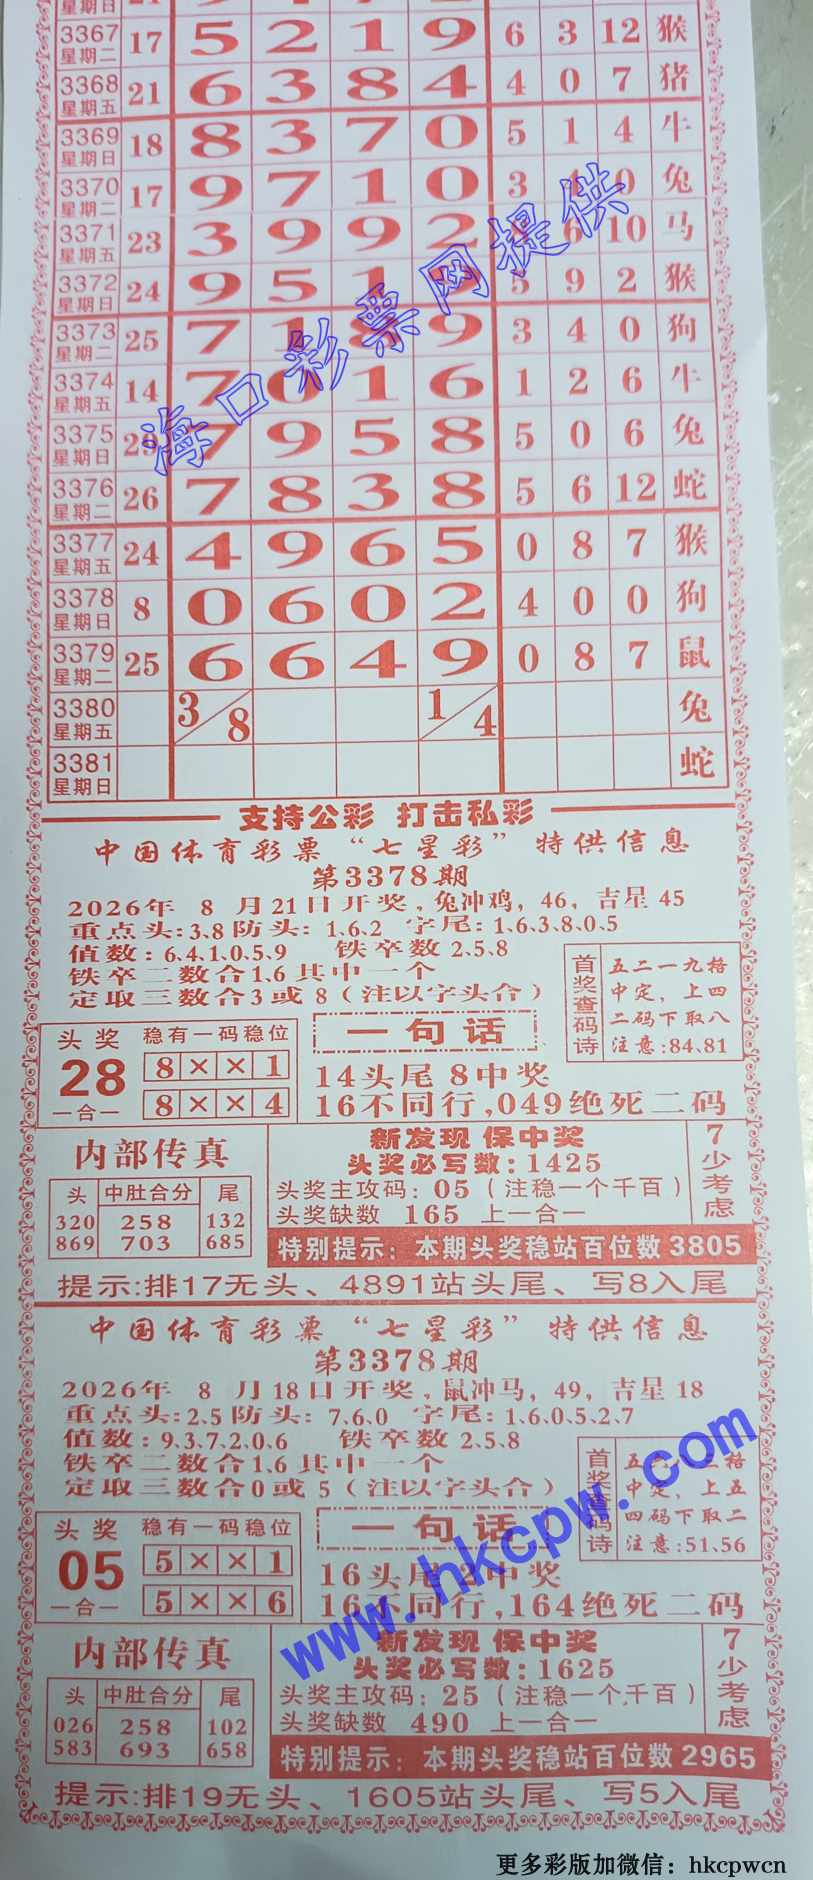 3367 星期二 17 5 2 1 9 6 3 12 猴
3368 星期五 21 6 3 8 4 4 0 7 猪
3369 星期日 18 8 3 7 0 5 1 4 牛
3370 星期二 17 9 7 1 0 3 0 兔
3371 星期五 23 3 9 9 2 6 10 马
3372 星期日 24 9 5 1 5 9 2 猴
3373 星期二 25 7 1 8 9 3 4 0 狗
3374 星期五 14 7 0 1 6 1 2 6 牛
3375 星期日 29 7 9 5 8 5 0 6 兔
3376 星期二 26 7 8 3 8 5 6 12 蛇
3377 星期五 24 4 9 6 5 0 8 7 猴
3378 星期日 8 0 6 0 2 4 0 0 狗
3379 星期二 25 6 6 4 9 0 8 7 鼠
3380 星期五 3/8 1/4 兔
3381 星期日 蛇
海口彩票网提供
支持公彩 打击私彩
中国体育彩票“七星彩”特供信息
第3378期
2026年 8 月21日开奖,兔冲鸡,46,吉星45
重点头:3.8防头: 1、6.2 字尾:1、6.3、8.0、5
值数: 6、4.1、0、5、9 铁卒数2、5、8
铁卒二数合1、6其中一个
定取三数合3或8(注以字头合)
首奖查码诗
五二一九格
中定，上四
二码下取八
注意:84、81
头奖
28
一合一
稳有一码稳位
8××1
8××4
一句话
14头尾8中奖
16不同行,049绝死二码
内部传真
头 中肚合分 尾
320 258 132
869 703 685
新发现 保中奖
头奖必写数:1425
头奖主攻码: 05 (注稳一个千百)
头奖缺数 165 上一合一
7少考虑
特别提示: 本期头奖稳站百位数3805
提示:排17无头、4891站头尾、写8入尾
中国体育彩票“七星彩”特供信息
第3378期
2026年 8 月18日开奖,鼠冲马,49,吉星18
重点头:2.5防头: 7、6、0 字尾:1、6、0、5、2、7
值数: 9、3、7、2、0、6 铁卒数2、5、8
铁卒二数合1、6其中一个
定取三数合0或5(注以字头合)
首奖查码诗
五 格
中定，上五
四码下取二
注意:51、56
头奖
05
一合一
稳有一码稳位
5××1
5××6
一句话
16头尾2中奖
16不同行,164绝死二码
www.hkcpw.com
内部传真
头 中肚合分 尾
026 258 102
583 693 658
新发现 保中奖
头奖必写数:1625
头奖主攻码: 25 (注稳一个千百)
头奖缺数 490 上一合一
7少考虑
特别提示: 本期头奖稳站百位数2965
提示:排19无头、1605站头尾、写5入尾
更多彩版加微信：hkcpwcn